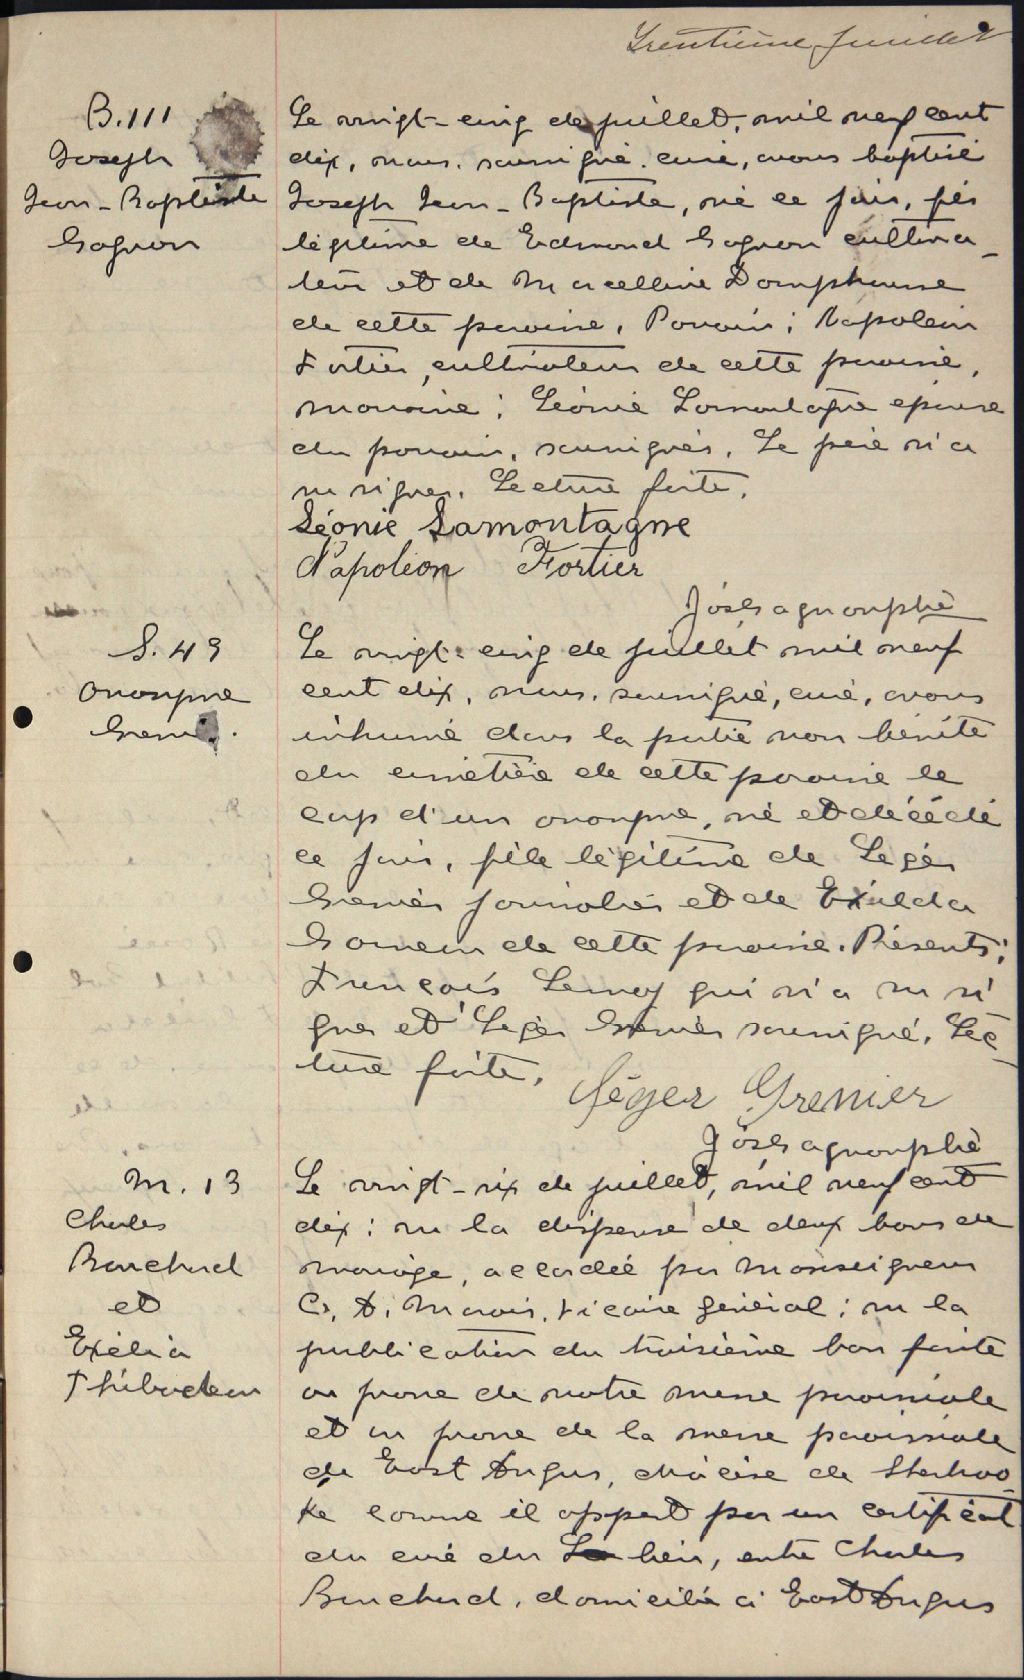 Trentième feuillet
B.111
Joseph
Jean-Baptiste
Gagnon
Le vingt-cinq de juillet, mil neuf cent
dix, nous, soussigné, curé, avons baptisé
Joseph Jean-Baptiste, né ce jour, fils
légitime de Edmond Gagnon cultiva-
teur et de Marcelline Domphousse
de cette paroisse, Parrain; Napoléon
Fortier, cultivateur de cette paroisse,
marraine; Léonie Lamontagne épouse
du parrain, soussignés. Le père n'a
su signer. Lecture faite.
Léonie Lamontagne
Napoléon Fortier
S. 49
anonyme
Grenier.
Le vingt-cinq de juillet mil neuf
cent dix, nous, soussigné, curé, avons
inhumé dans la partie non bénite
du cimetière de cette paroisse le
corps d'un anonyme, né et décédé
ce jour, fils légitime de Léger
Grenier journalier et de Exilda
Gomeau de cette paroisse. Présents:
François Lemay qui n'a su si
gner et Léger Grenier soussigné. Lec-
ture faite.
Léger Grenier
M. 13
Charles
Bouchard
et
Exélia
Thibodeau
Le vingt-six de juillet, mil neuf cent
dix; vu la dispense de deux bans de
mariage, accordée par Monseigneur
Marois, vicaire général; vu la
publication du troisième ban faite
au prone de notre messe paroissiale
et au prone de la messe paroissiale
de East Angus, diocèse de Sherbroo-
ke comme il appert par un certificat
du curé du lieu, entre Charles
Bouchard, domicilié à East Angus